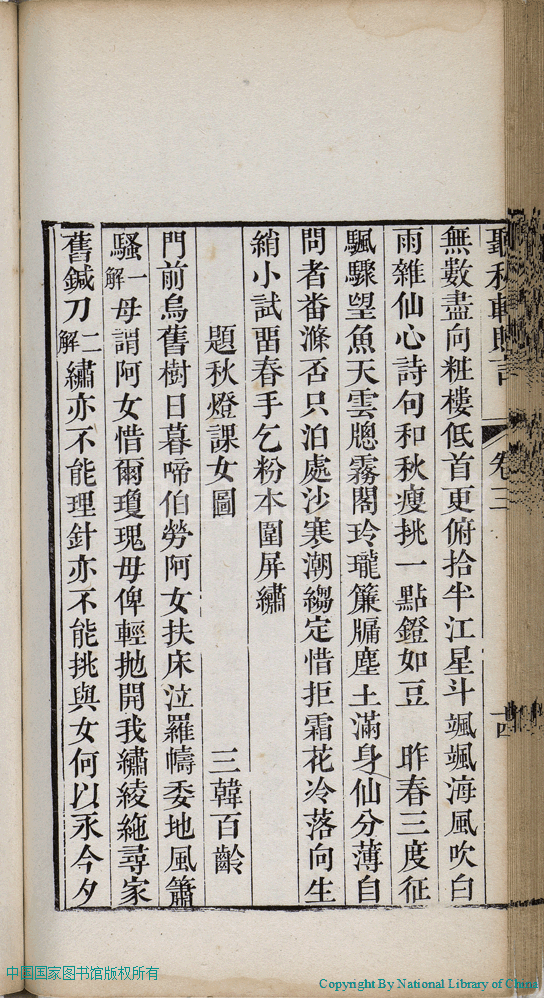 聽秋軒贈言 卷三 十四
無數盡向粧樓低首更俯拾半江星斗颯颯海風吹白
雨雜仙心詩句和秋瘦挑一點鐙如豆　昨春三度征
颿驟望魚天雲牕霧閣玲瓏簾牖塵土滿身仙分薄自
問者番滌否只泊處沙寒潮縐定惜拒霜花冷落向生
綃小試畱春手乞粉本圍屏繡
題秋燈課女圖　三韓百齡
門前烏舊樹日暮啼伯勞阿女扶床泣羅幬委地風簫
騷一解母謂阿女惜爾瓊瑰毋俾輕拋開我繡綾絁尋家
舊鍼刀二解繡亦不能理針亦不能挑與女何以永今夕
中国国家图书馆版权所有
Copyright By National Library of China